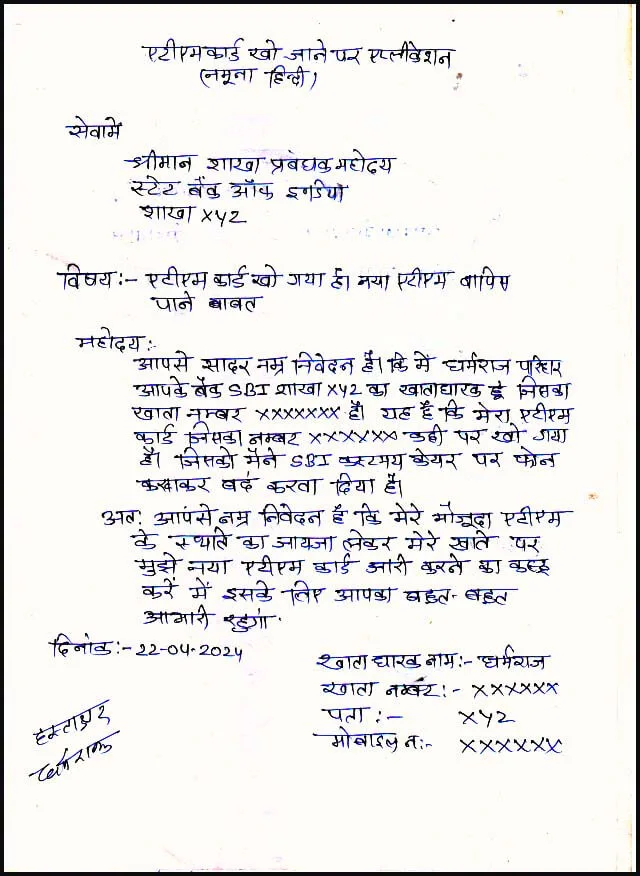 एटीएम कार्ड खो जाने पर एप्लीकेशन
(नमूना हिन्दी)
सेवामें
श्रीमान शाखा प्रबंधक महोदय
स्टेट बैंक ऑफ इण्डिया
शाखा XYZ
विषय:- एटीएम कार्ड खो गया है। नया एटीएम वापिस
पाने बाबत
महोदय:-
आपसे सादर नम्र निवेदन है। कि मैं धर्मराज परिहार
आपके बैंक SBI शाखा XYZ का खाताधारक हूं जिसका
खाता नम्बर XXXXXXX है। यह है कि मेरा एटीएम
कार्ड जिसका नम्बर XXXXXX कही पर खो गया
है। जिसको मैने SBI कस्टमय केयर पर फोन
करवाकर बदं करवा दिया है।
अत: आपसे नम्र निवेदन है कि मेरे मौजूदा एटीएम
के स्थति का जायजा लेकर मेरे खाते पर
मुझे नया एटीएम कार्ड जारी करने का कष्ट
करें में इसके लिए आपका बहुत-बहुत
आभारी रहुगां.
दिनांक:- 22-04-2024
खाता धारक नाम:- धर्मराज
खाता नम्बर:- XXXXXX
पता:- XYZ
मोबाइल न:- XXXXXX
हस्ताक्षर
धर्मराज